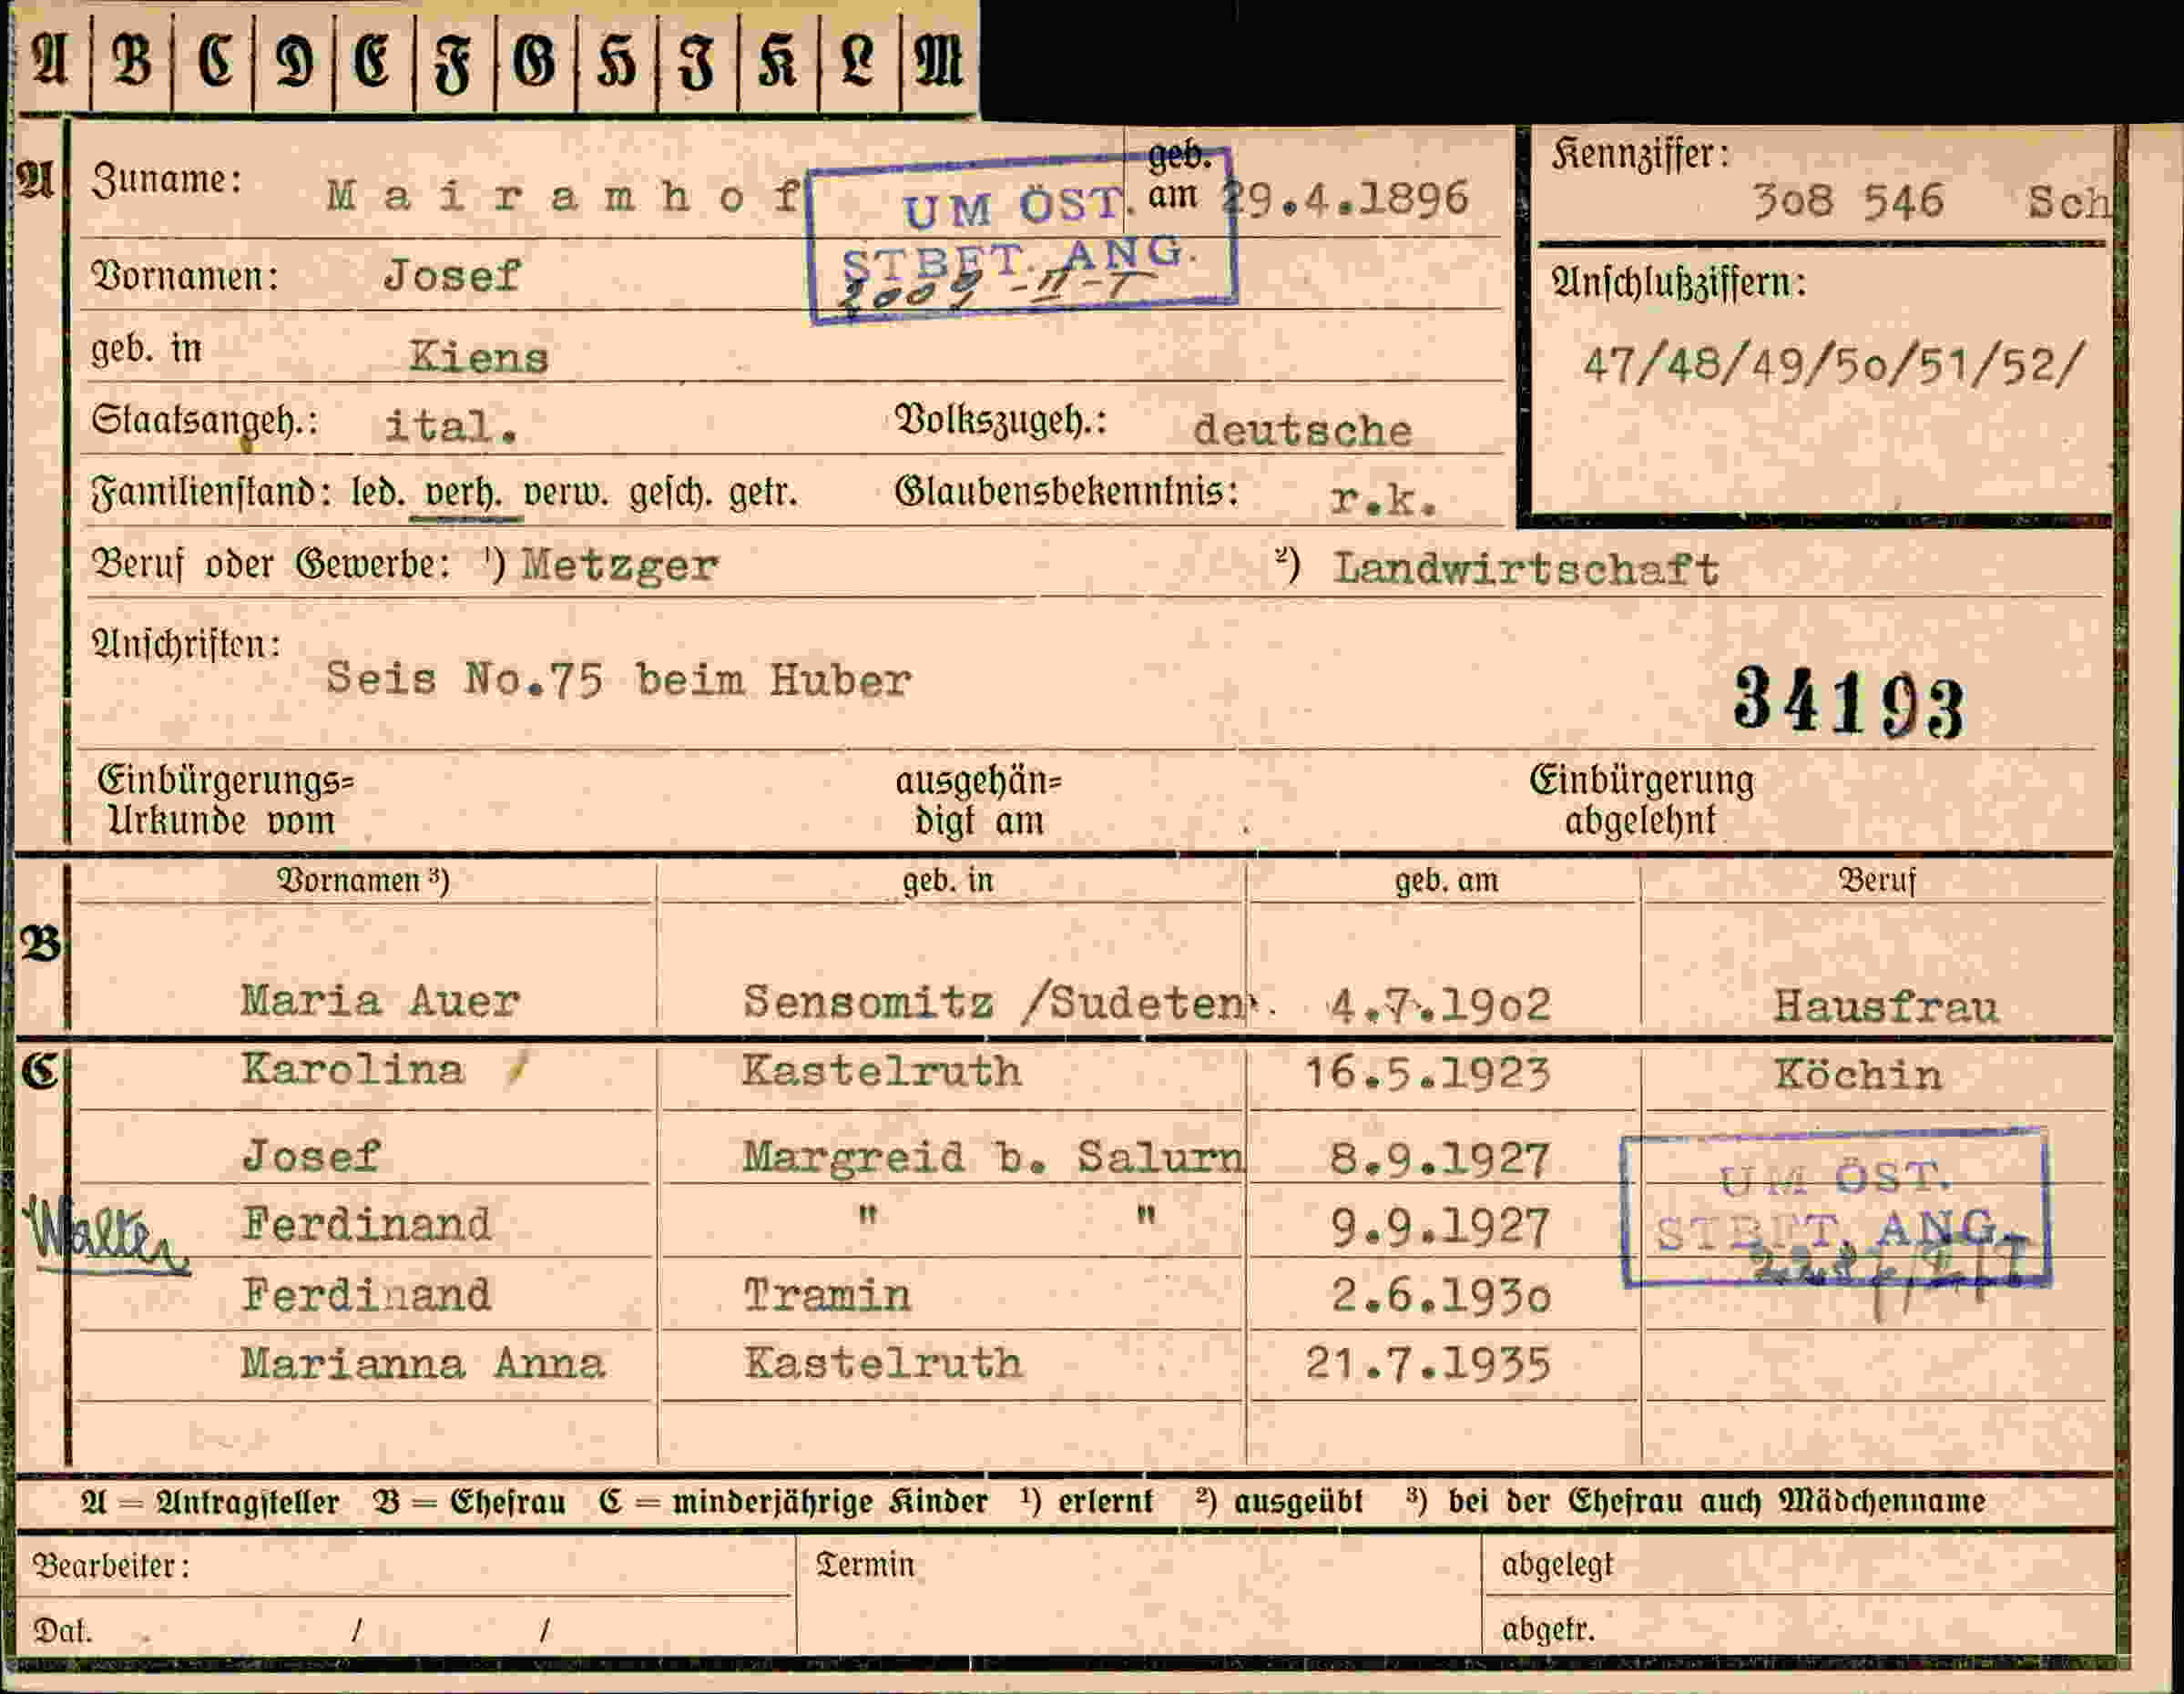 A B C D E F G H I K L M
A Zuname: Mairamhof geb. am 29.4.1896
UM ÖST.
STBET. ANG.
Kennziffer:
308 546 Sch
Vornamen: Josef
Anschlußziffern:
47/48/49/50/51/52/
geb. in Kiens
Staatsangeh.: ital. Volkszugeh.: deutsche
Familienstand: led. verh. verw. gesch. getr. Glaubensbekenntnis: r.k.
Beruf oder Gewerbe: ¹) Metzger ²) Landwirtschaft
Anschriften:
Seis No.75 beim Huber
34193
Einbürgerungs= ausgehän= Einbürgerung
Urkunde vom digt am abgelehnt
Vornamen ³) geb. in geb. am Beruf
B
Maria Auer Sensomitz /Sudeten. 4.7.1902 Hausfrau
C Karolina Kastelruth 16.5.1923 Köchin
Josef Margreid b. Salurn 8.9.1927
UM ÖST.
Walter Ferdinand " " 9.9.1927
STBET. ANG.
Ferdinand Tramin 2.6.1930
Marianna Anna Kastelruth 21.7.1935
A = Antragsteller B = Ehefrau C = minderjährige Kinder ¹) erlernt ²) ausgeübt ³) bei der Ehefrau auch Mädchenname
Bearbeiter: Termin abgelegt
Dat. / / abgetr.